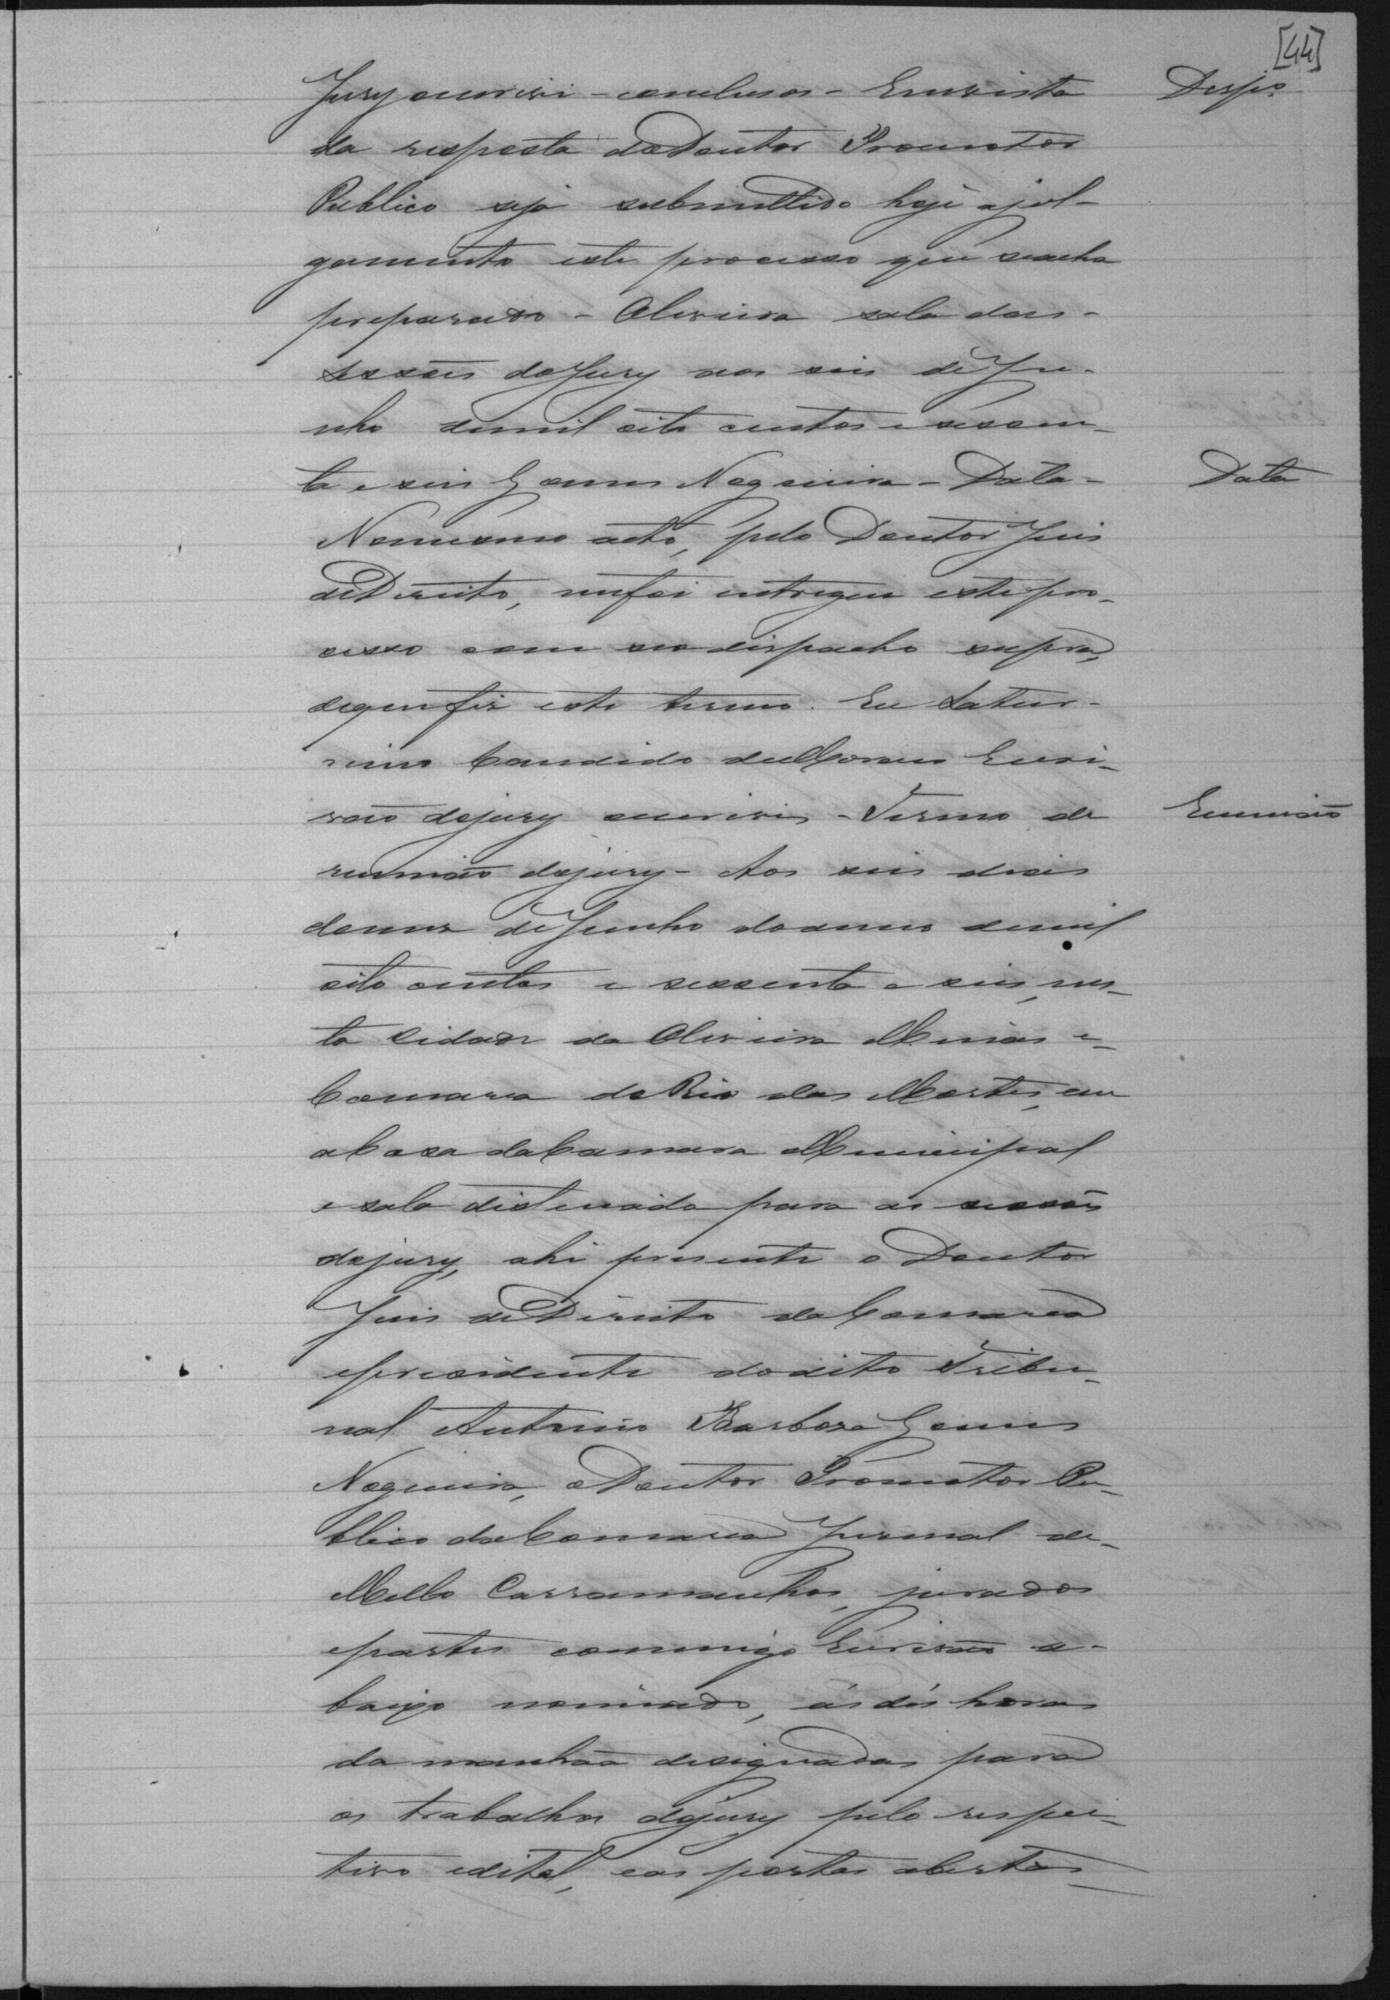 [44]
Jury escrevi - conclusos - Em vista Desp.o
da resposta do Doutor Promotor
Publico seja submettido hoje a jul-
gamento este processo que se acha
preparado - Oliveira sala das -
sessões do Jury aos seis de Ju-
nho de mil oito centos e sessen-
ta e seis Gomes Nogueira - Data - Data
No mesmo acto, pelo Doutor Juis
de Direito, me foi entregue este pro-
cesso com seo despacho supra,
de que fiz este termo. Eu Satur-
nino Candido de Moraes Escri-
vão do jury escrevi - Termo de Reunião
reunião do jury - Aos seis dias
do mez de Junho do anno de mil
oito centos e sessenta e seis, nes-
ta Cidade da Oliveira Minas e -
Comarca do Rio das Mortes, em
a Casa da Camara Municipal
e sala distinada para as sessões
do jury, ahi presente o Doutor
Juis de Direito da Comarca
e presidente do dito Tribu-
nal Antonio Barboza Gomes
Nogueira, o Doutor Promotor Pu-
blico da Comarca Juvenal de -
Mello Carramanhos, jurados
e partes commigo Escrivão a-
baixo nomiado, ás dés horas
da manhãa designadas para
os trabalhos do jury pelo respec-
tivo edital, e as portas abertas,